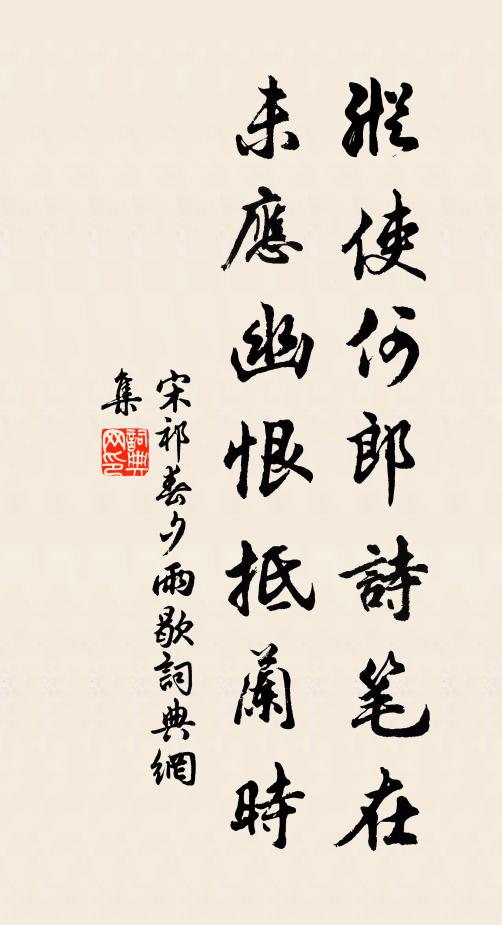 縱使何郎詩笔在
未應幽恨抵蘭時
宋祁春夕雨歇詞典網
集
詞典
网印